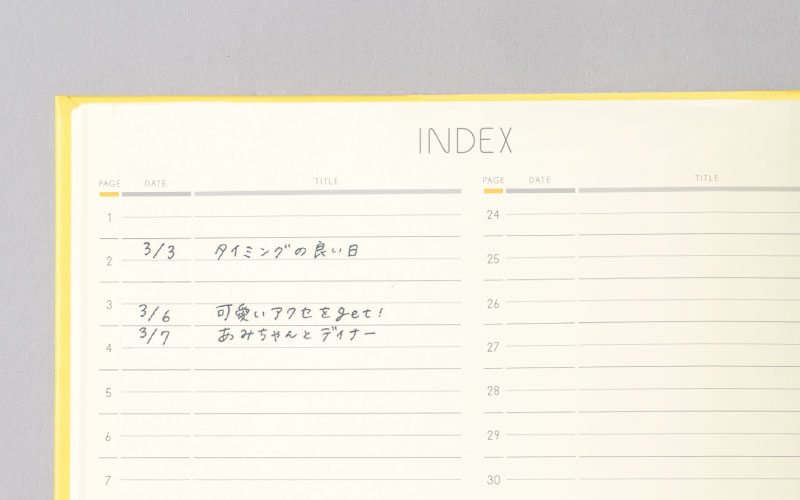 INDEX
PAGE DATE TITLE
1
2 3/3 タイミングの良い日
3 3/6 可愛いアクセをget!
4 3/7 あみちゃんとディナー
5
6
7
PAGE DATE TITLE
24
25
26
27
28
29
30